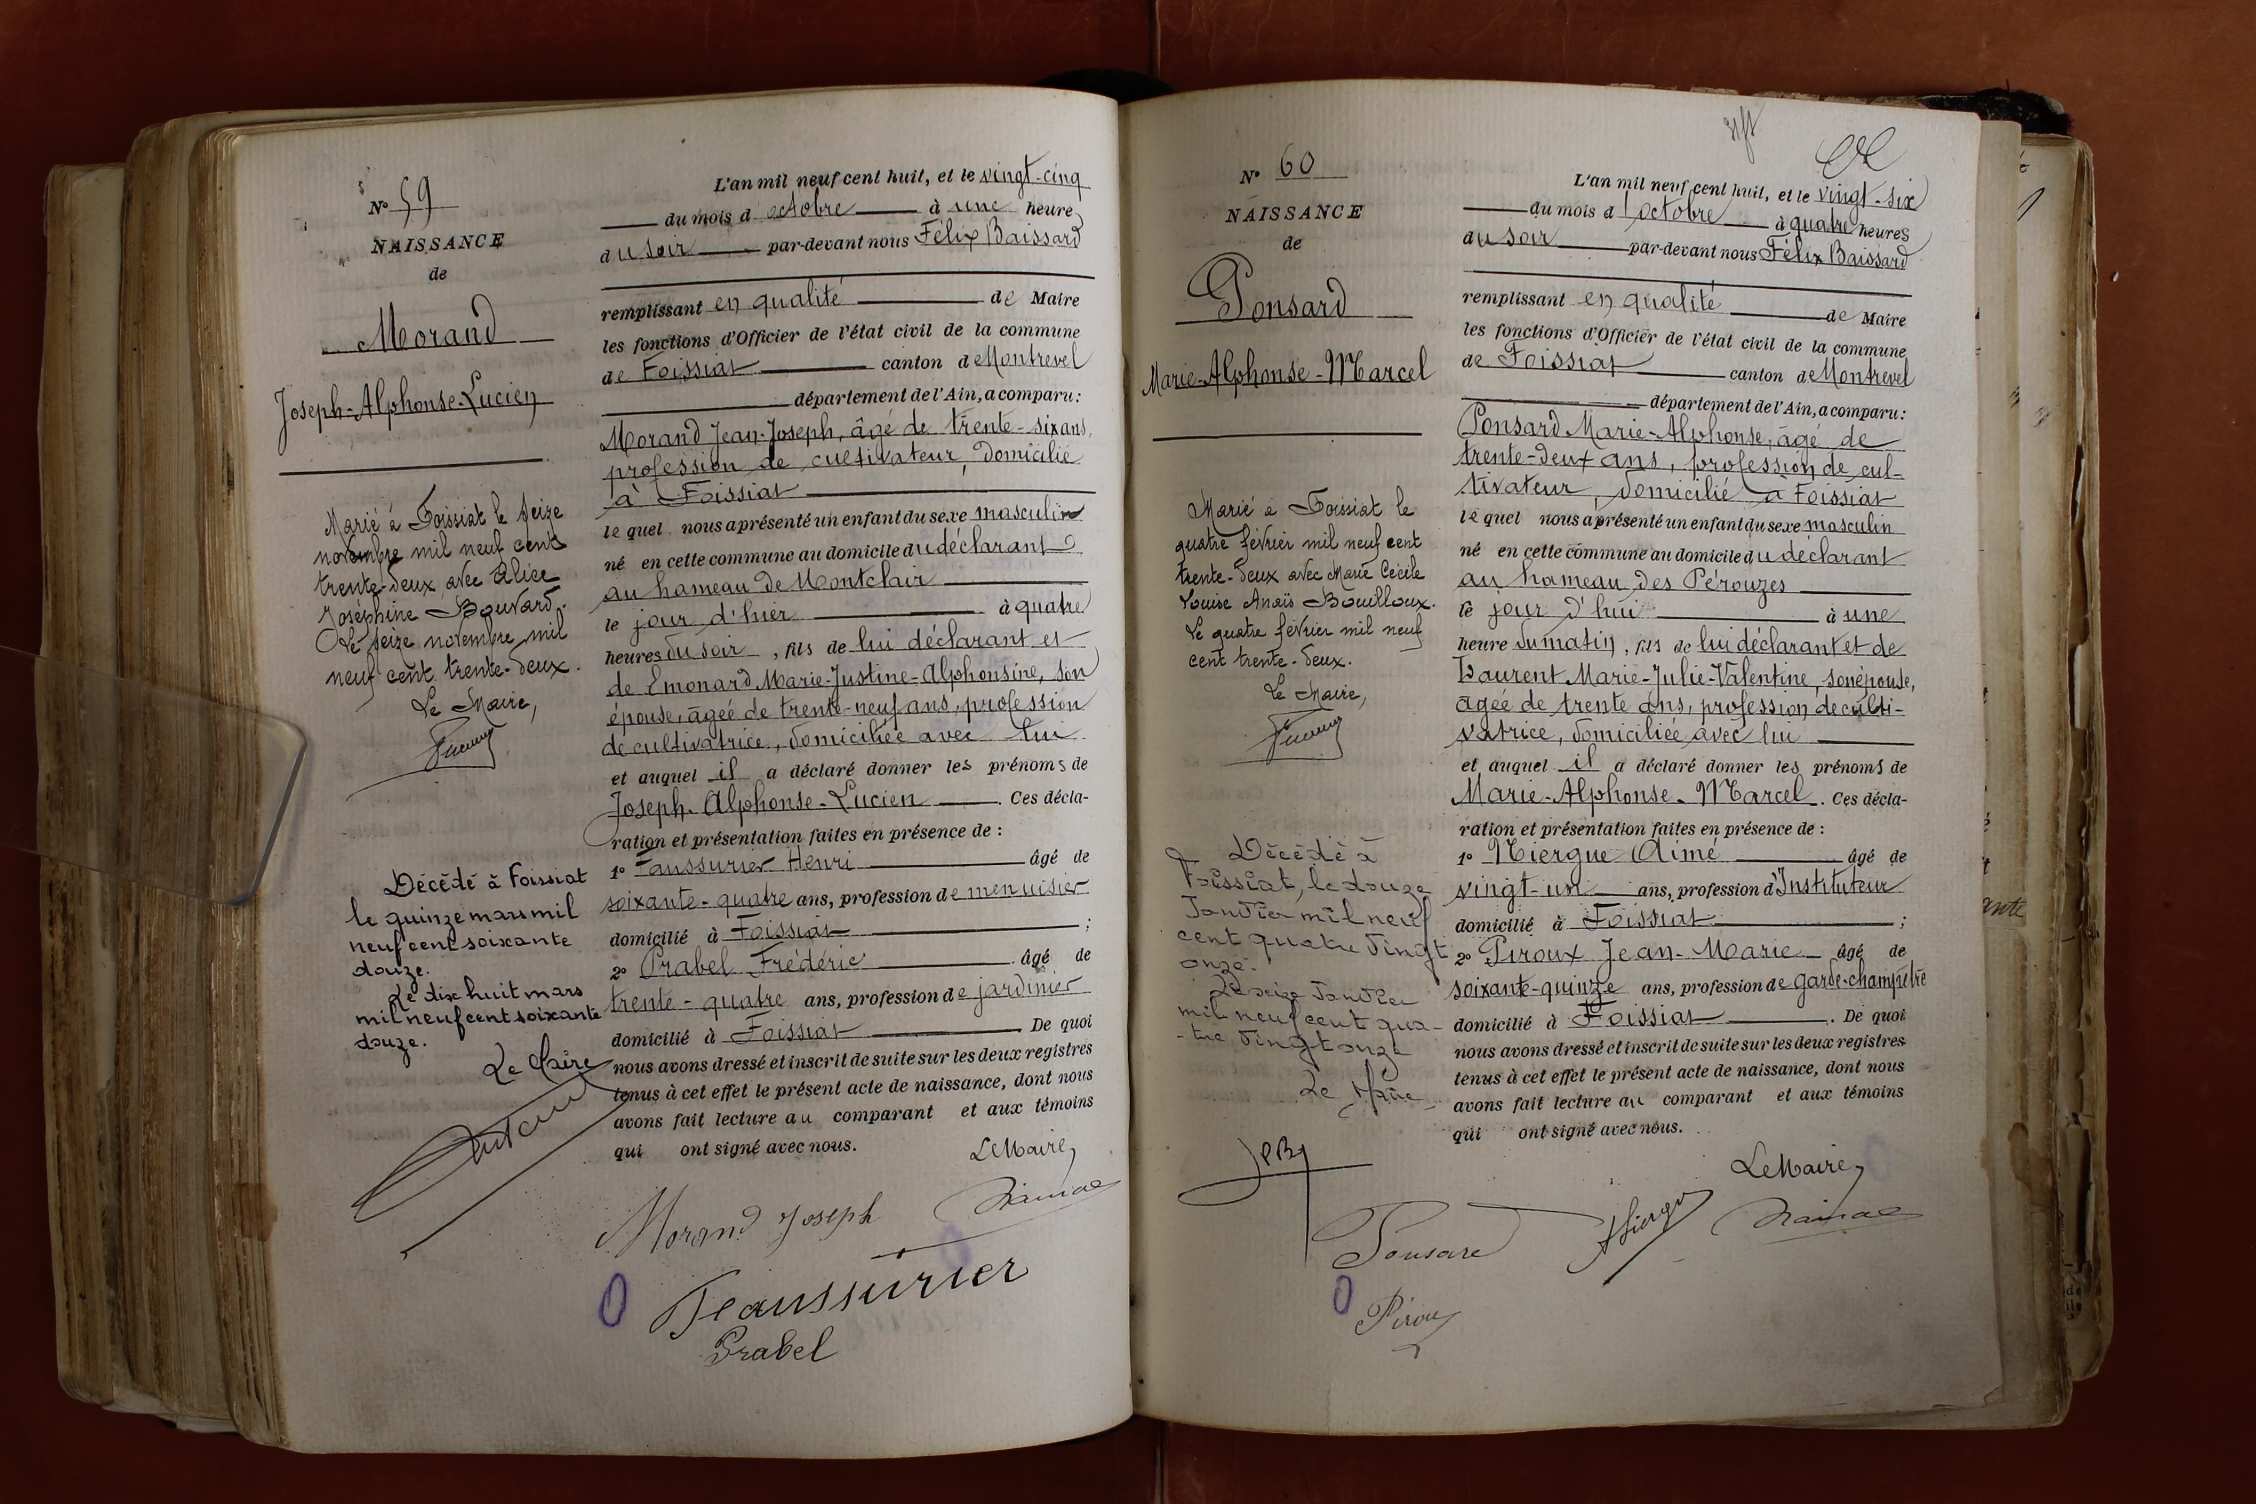 N° 59
NAISSANCE
de
Morand
Joseph-Alphonse-Lucien
Marié à Foissiat le seize
novembre mil neuf cent
trente-deux, avec Alice
Joséphine Bouvard.
Le seize novembre mil
neuf cent trente-deux.
Le Maire,
Décédé à Foissiat
le quinze mars mil
neuf cent soixante
douze.
Le dix huit mars
mil neuf cent soixante
douze.
Le Maire
L'an mil neuf cent huit, et le vingt-cinq
du mois d'octobre à une heure
du soir par-devant nous Félix Baissard
remplissant en qualité de Maire
les fonctions d'Officier de l'état civil de la commune
de Foissiat canton de Montrevel
département de l'Ain, a comparu:
Morand Jean-Joseph, âgé de trente-six ans,
profession de cultivateur, domicilié
à Foissiat
le quel nous a présenté un enfant du sexe masculin
né en cette commune au domicile du déclarant
au hameau de Montclair
le jour d'hier à quatre
heures du soir, fils de lui déclarant et
de Emonard Marie-Justine-Alphonsine, son
épouse, âgée de trente-neuf ans, profession
de cultivatrice, domiciliée avec lui
et auquel il a déclaré donner les prénoms de
Joseph-Alphonse-Lucien. Ces décla-
ration et présentation faites en présence de :
1° Faussurier Henri âgé de
soixante-quatre ans, profession de menuisier
domicilié à Foissiat ;
2° Prabel Frédéric âgé de
trente-quatre ans, profession de jardinier
domicilié à Foissiat. De quoi
nous avons dressé et inscrit de suite sur les deux registres
tenus à cet effet le présent acte de naissance, dont nous
avons fait lecture au comparant et aux témoins
qui ont signé avec nous.
Le Maire,
Morand Joseph
Feaussurier
Prabel
N° 60
NAISSANCE
de
Ponsard
Marie-Alphonse-Marcel
Marié à Foissiat le
quatre février mil neuf cent
trente-deux avec Marie Cécile
Louise Anaïs Bouilloux.
Le quatre février mil neuf
cent trente-deux.
Le Maire,
Décédé à
Foissiat, le douze
Janvier mil neuf
cent quatre vingt
onze.
Le seize Janvier
mil neuf cent qua-
-tre vingt onze
Le Maire
L'an mil neuf cent huit, et le vingt-six
du mois d'octobre à quatre heures
du soir par-devant nous Félix Baissard
remplissant en qualité de Maire
les fonctions d'Officier de l'état civil de la commune
de Foissiat canton de Montrevel
département de l'Ain, a comparu:
Ponsard Marie-Alphonse, âgé de
trente-deux ans, profession de cul-
tivateur, domicilié à Foissiat
le quel nous a présenté un enfant du sexe masculin
né en cette commune au domicile du déclarant
au hameau des Pérouzes
le jour d'hui à une
heure du matin, fils de lui déclarant et de
Laurent Marie-Julie-Valentine, son épouse,
âgée de trente ans, profession de culti-
vatrice, domiciliée avec lui
et auquel il a déclaré donner les prénoms de
Marie-Alphonse-Marcel. Ces décla-
ration et présentation faites en présence de :
1° Niergue Aimé âgé de
vingt-un ans, profession d'Instituteur
domicilié à Foissiat ;
2° Piroux Jean-Marie âgé de
soixante-quinze ans, profession de garde-champêtre
domicilié à Foissiat. De quoi
nous avons dressé et inscrit de suite sur les deux registres
tenus à cet effet le présent acte de naissance, dont nous
avons fait lecture au comparant et aux témoins
qui ont signé avec nous.
Le Maire,
Ponsard
Piroux